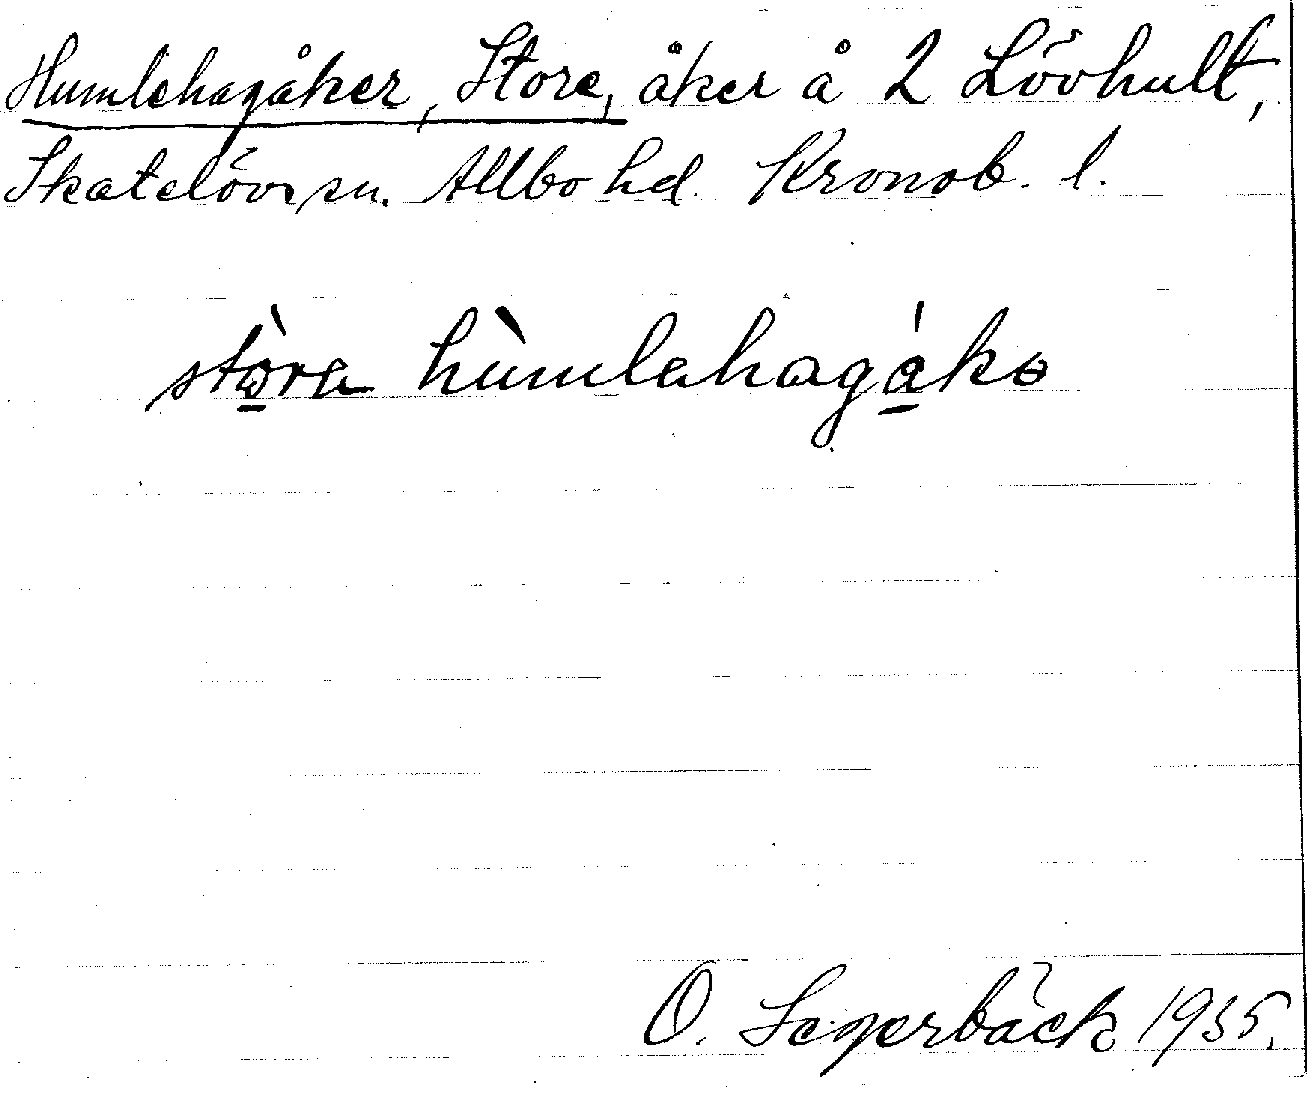 Humlehagåker, Store, åker å 2 Lövhult,
Skatelövs sn. Allbo hd. Kronob. l.
stò̲ra hùmlahagá̲kə
O. Segerbäck 1935.